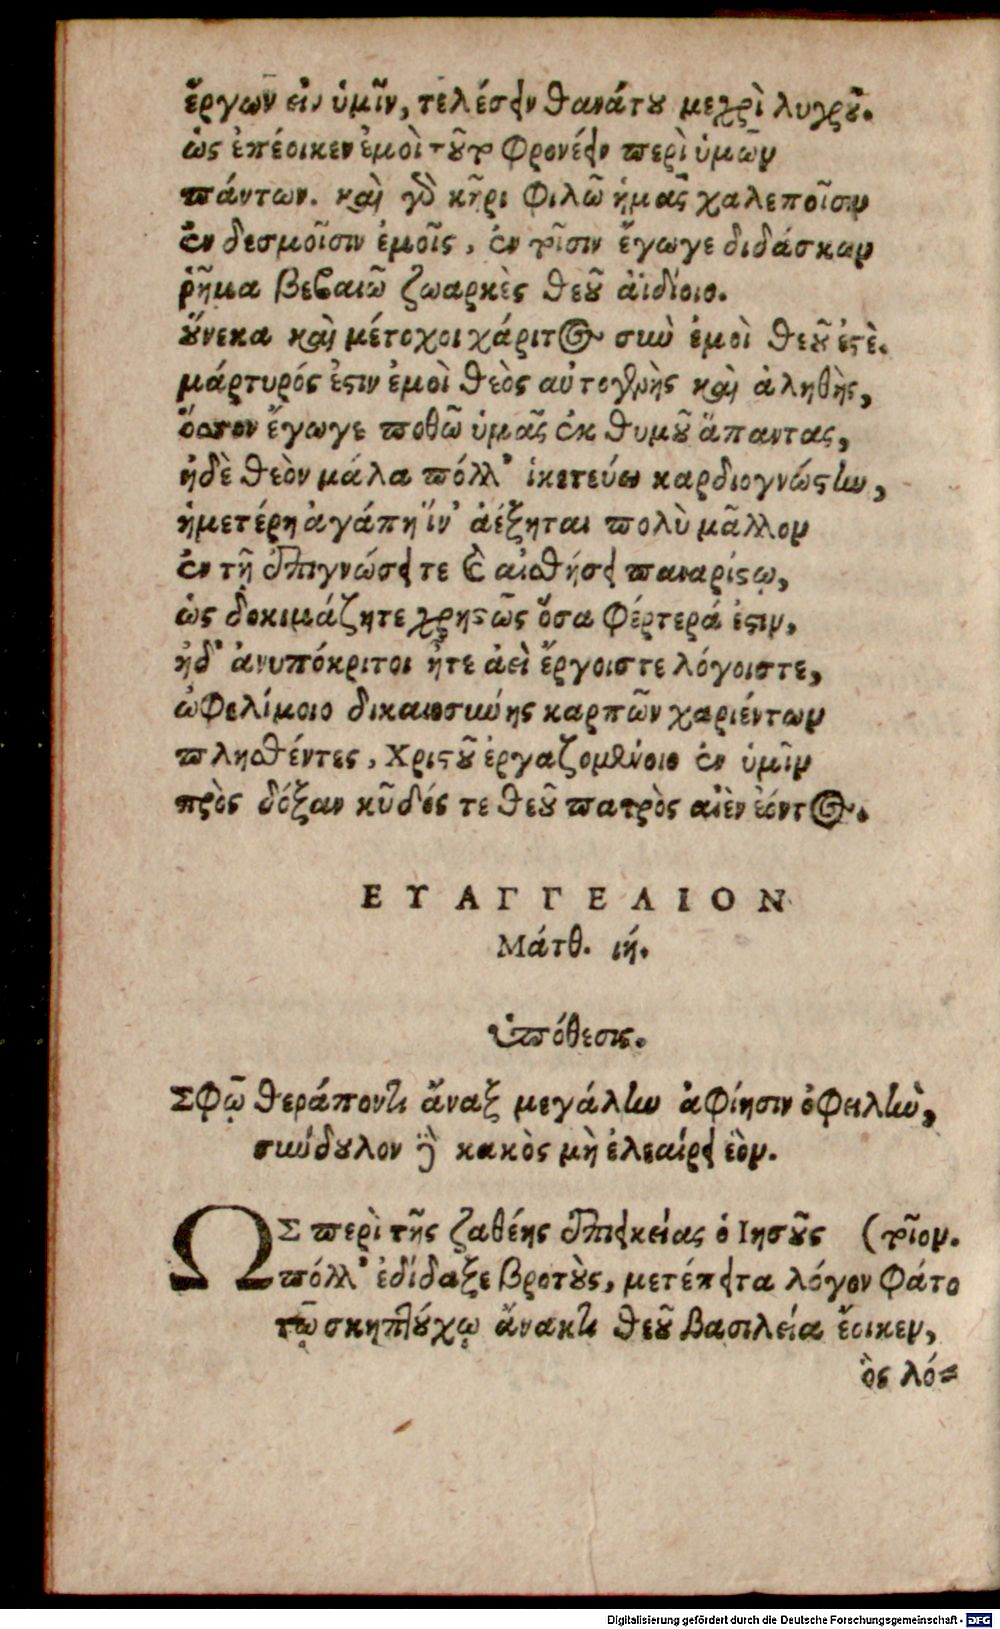 ἔργων ἐν ὑμῖν, τελέσειν θανάτου μεχρὶ λυγροῦ.
ὡς ἐπέοικεν ἐμοὶ τοῦτο φρονέειν περὶ ὑμῶν
πάντων. καὶ γὰρ κῆρι φιλῶ ἡμᾶς χαλεποῖσιν
ἐν δεσμοῖσιν ἐμοῖς, ἐν τοῖσιν ἔγωγε διδάσκων
ῥῆμα βεβαιῶ ζωαρκὲς θεοῦ ἀϊδίοιο.
οὕνεκα καὶ μέτοχοι χάριτος σὺν ἐμοὶ θεοῦ ἐστέ.
μάρτυρός ἐστιν ἐμοὶ θεὸς αὐτογενὴς καὶ ἀληθὴς,
ὅσσον ἔγωγε ποθῶ ὑμᾶς ἐκ θυμοῦ ἅπαντας,
ἠδὲ θεὸν μάλα πόλλ' ἱκετεύω καρδιογνώστην,
ἡμετέρη ἀγάπη ἵν' ἀέξηται πολὺ μᾶλλον
ἐν τῇ ἐπιγνώσει τε καὶ αἰσθήσει παναρίστῳ,
ὡς δοκιμάζητε χρηστῶς ὅσα φέρτερά ἐστιν,
ἠδ' ἀνυπόκριτοι ἦτε ἀεὶ ἔργοις τε λόγοις τε,
ὠφελίμοιο δικαιοσύνης καρπῶν χαριέντων
πλησθέντες, Χριστοῦ ἐργαζομένοιο ἐν ὑμῖν
πρὸς δόξαν κῦδός τε θεοῦ πατρὸς αἰὲν ἐόντος.
ΕΥΑΓΓΕΛΙΟΝ
Μάτθ. ιή.
ὑπόθεσις.
Σφῷ θεράποντι ἄναξ μεγάλην ἀφίησιν ὀφειλὴν,
σύνδουλον δὲ κακὸς μὴ ἐλεαίρει ἑὸν.
ΩΣ περὶ τῆς ζαθέης ἐπιεικείας ὁ Ἰησοῦς (τοῖον.
πόλλ' ἐδίδαξε βροτοὺς, μετέπειτα λόγον φάτο
τῷ σκηπτούχῳ ἄνακτι θεοῦ βασιλεία ἔοικεν,
ὃς λό=
Digitalisierung gefördert durch die Deutsche Forschungsgemeinschaft - DFG